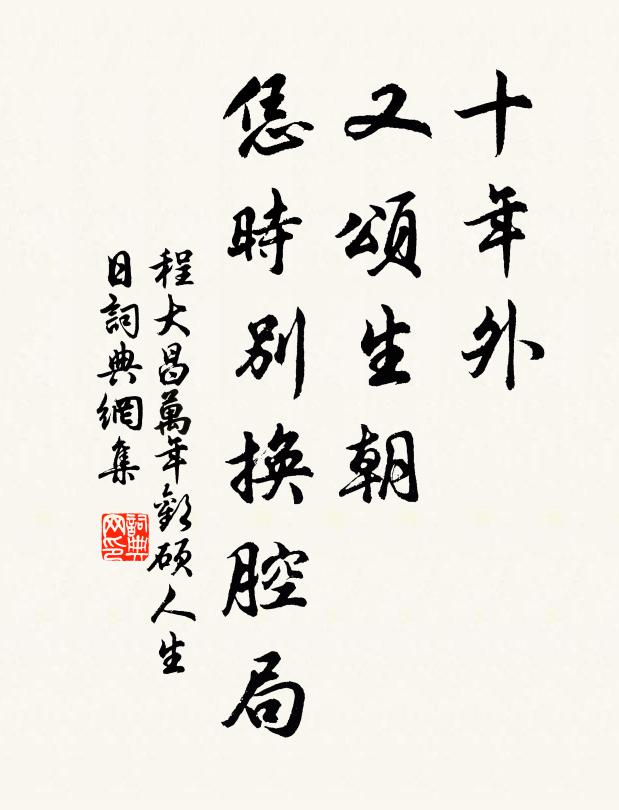 十年外
又頌生朝
恁時別換腔局
程大昌萬年歡碩人生
日詞典網集
詞典网印